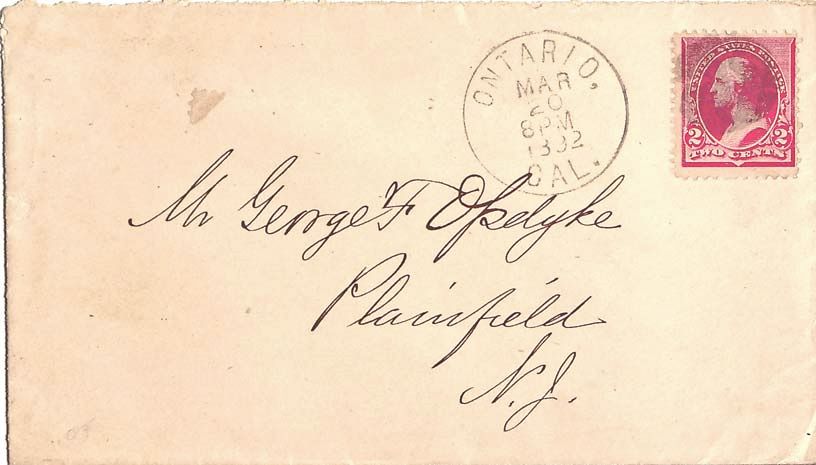 ONTARIO,
MAR
20
8PM
1892
CAL.
UNITED STATES POSTAGE
2 2
TWO CENTS
Mr George F Opdyke
Plainfield
N.J.